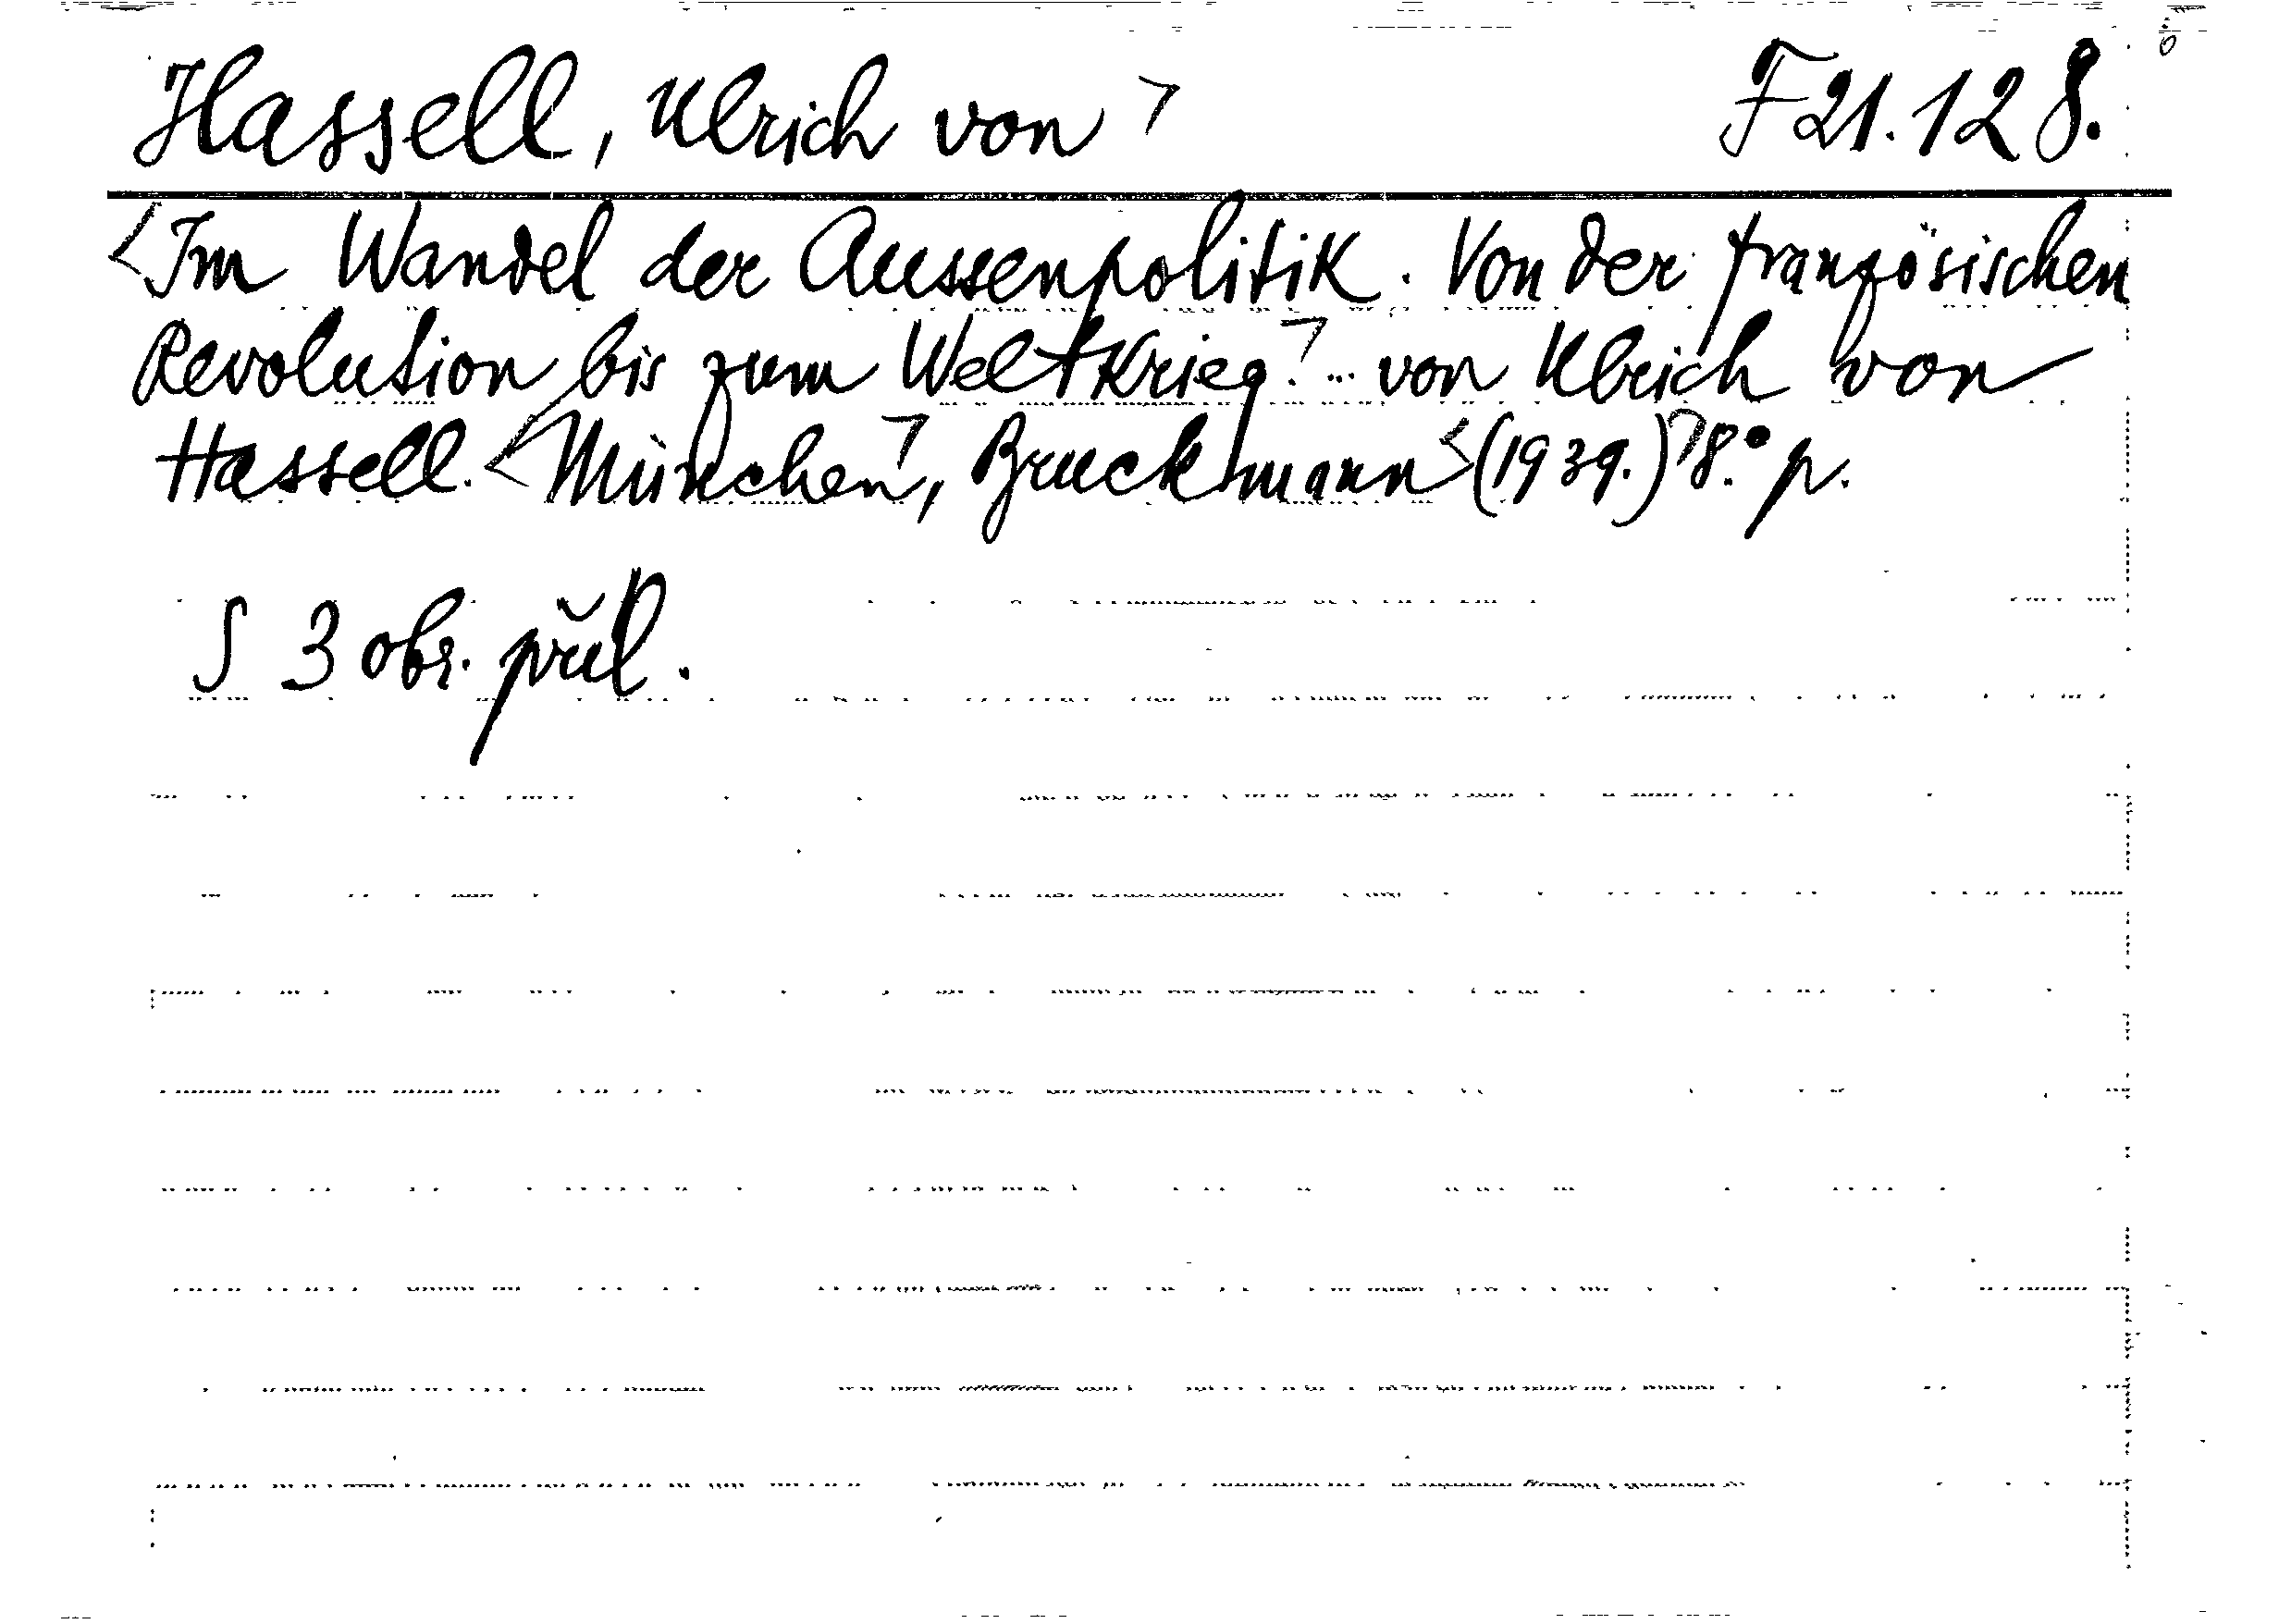 Hassell, Ulrich von ꓶ F 21.128.
<Im Wandel der Aussenpolitik. Von der französischen
Revolution bis zum Weltkrieg.ꓶ... von Ulrich von
Hassell. <Münchenꓶ, Bruckmann <(1939.)ꓶ 8.° p.
S 3 obr. příl.